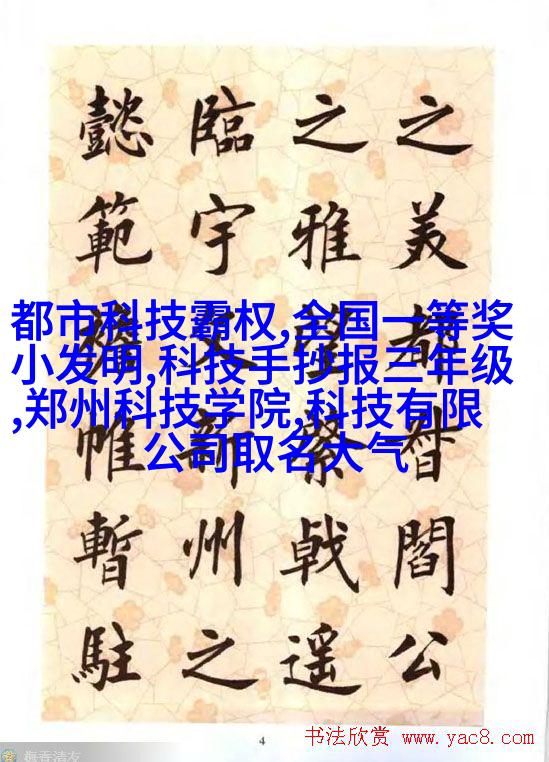 之美都督閻公
之雅望棨戟遥
臨宇文新州之
懿範襜帷暫駐
都市科技霸权,全国一等奖
小发明,科技手抄报三年级
,郑州科技学院,科技有限
公司取名大气
4
书法欣赏 www.yac8.com